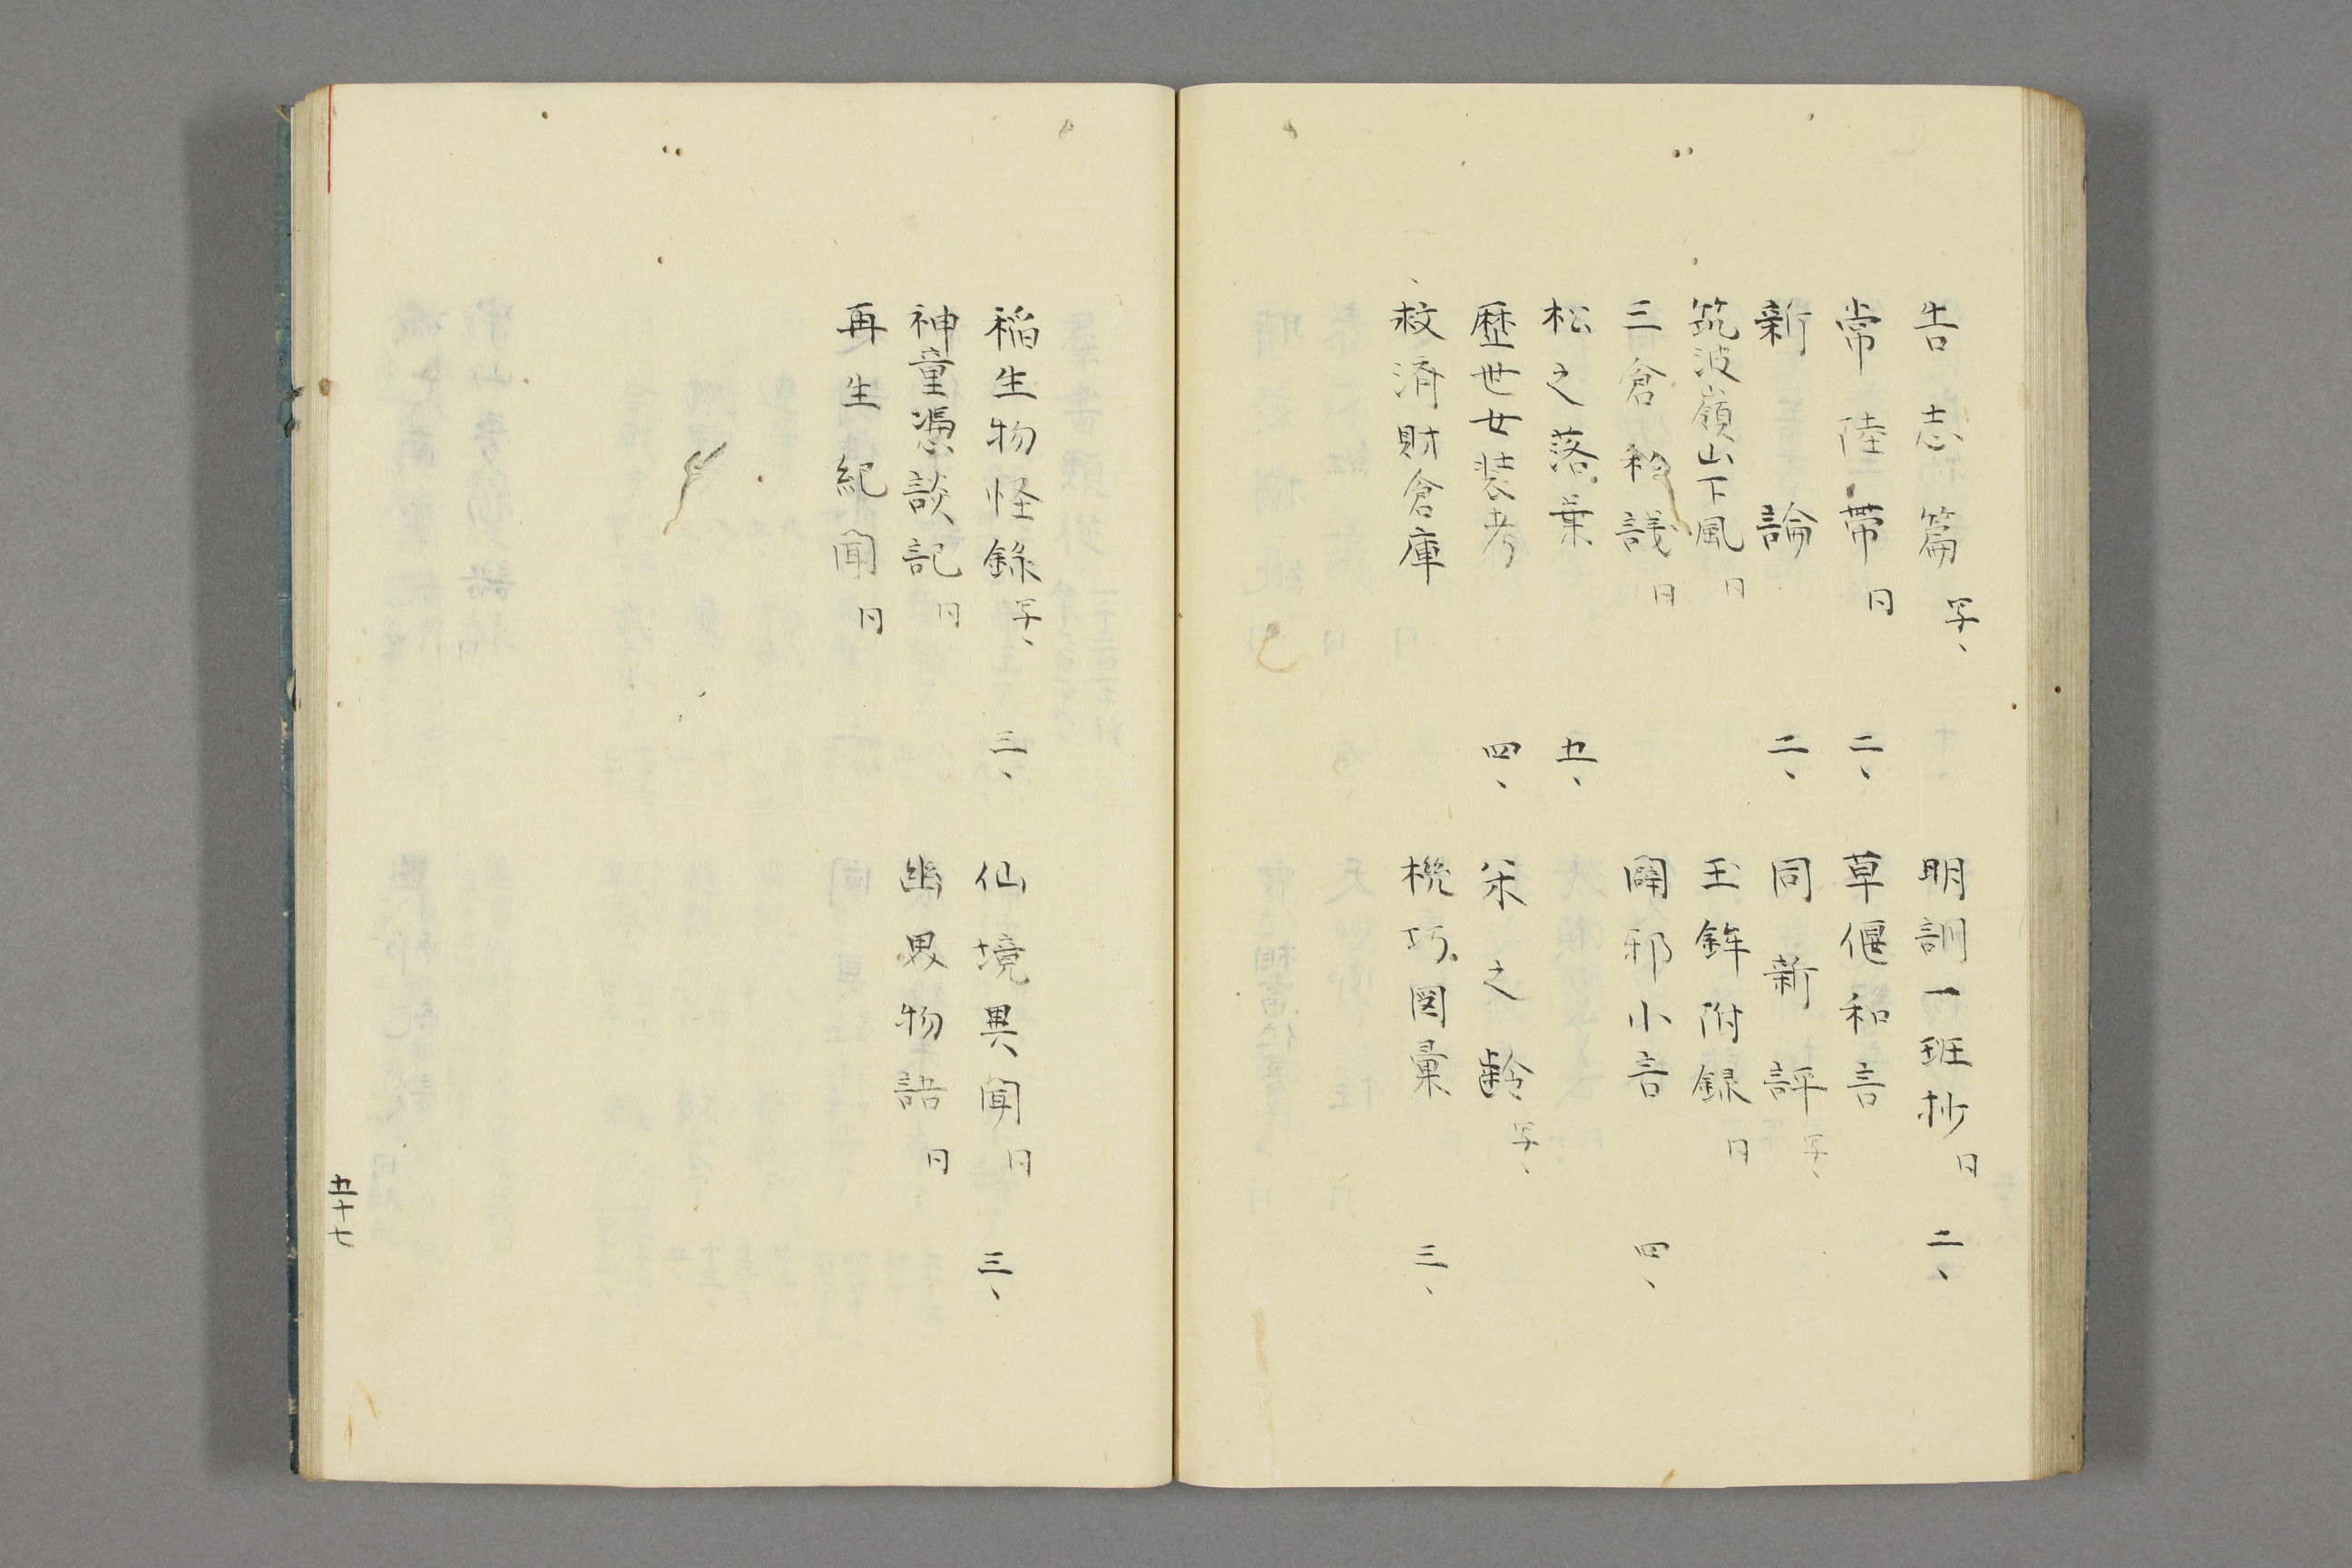 告志篇 写、 明訓一班抄 日 二、
常陸帯 日 二、 草偃和言
新論 二、 同新評 写、
筑波嶺山下風 日 玉鉾附録 日
三倉私議 日 闢邪小言 四、
松之落葉 五、
歴世女装考 四、 栄之齢 写、
救済財倉庫 機巧図彙 三、
稲生物怪錄 写、 三、 仙境異聞 日 三、
神童憑談記 日 幽界物語 日
再生紀聞 日
五十七